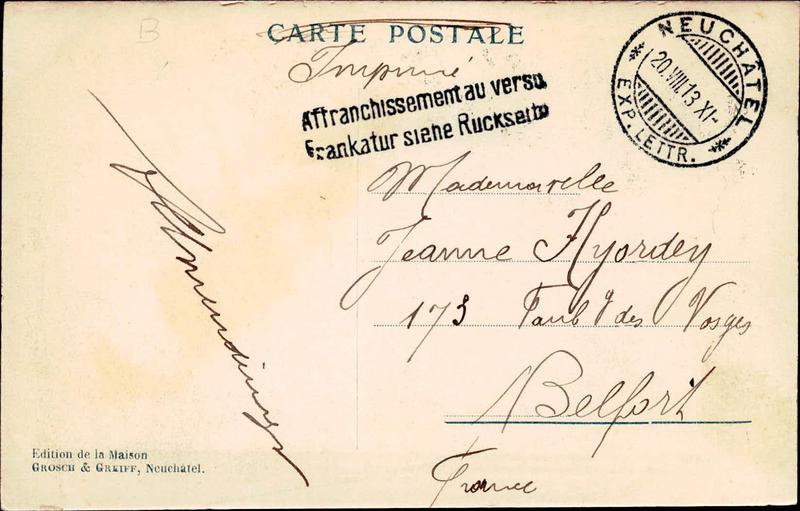 B
CARTE POSTALE
Imprimé
Affranchissement au verso
Frankatur siehe Rückseite
NEUCHÂTEL
20.VIII.13 XI-
EXP. LETTR.
Mademoiselle
Jeanne Hyordey
173 Faubg des Vosges
Belfort
France
Edition de la Maison
GROSCH & GREIFF, Neuchâtel.